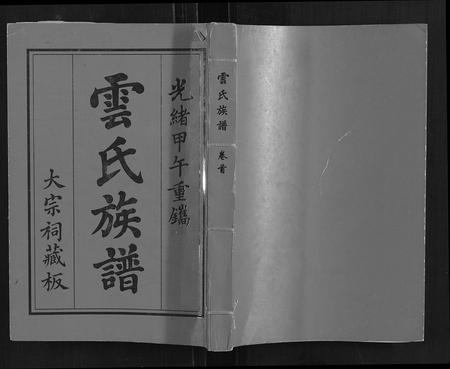 光緒甲午重鐫
雲氏族譜
大宗祠藏板
雲氏族譜 卷首